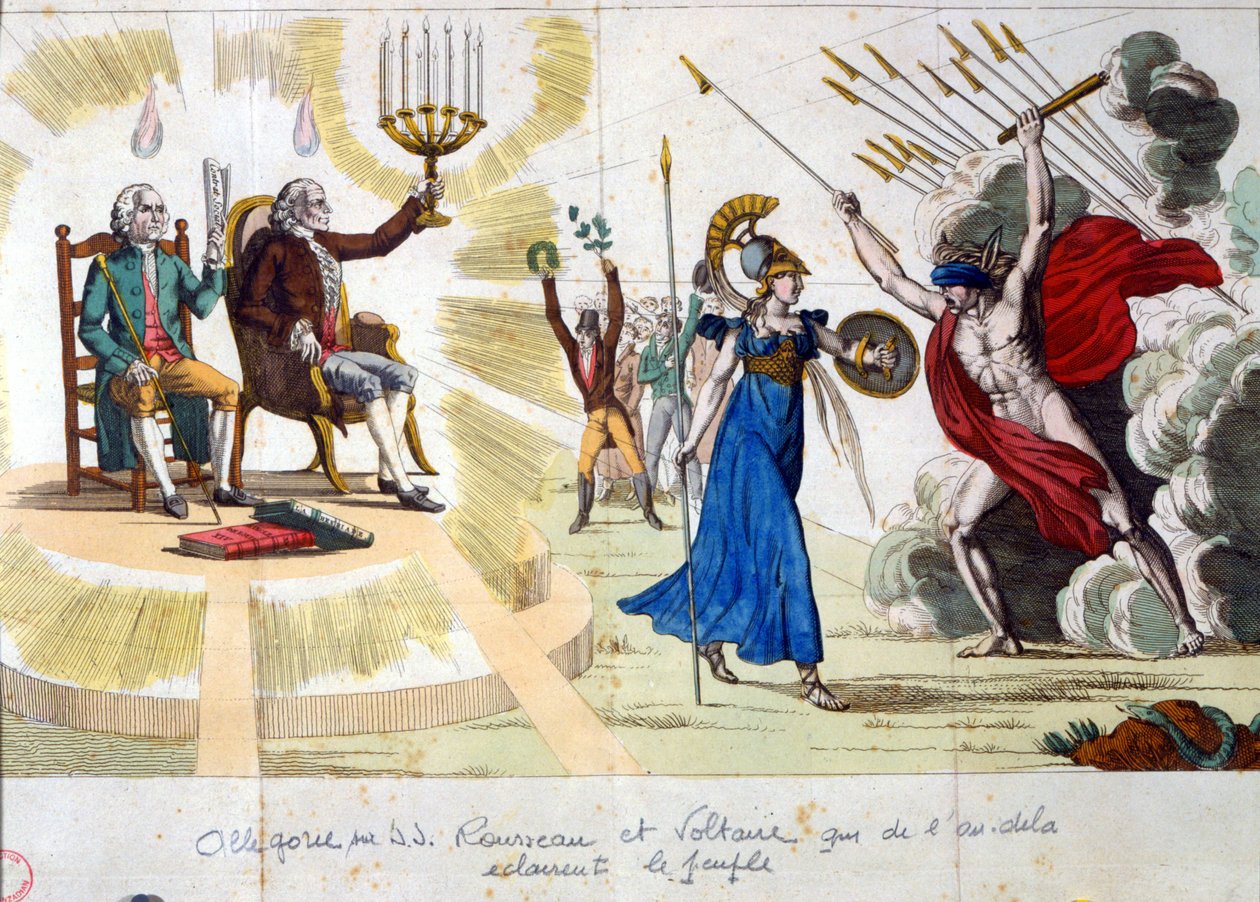 Contrat Social
LA HENRIADE
XIV
Allegorie sur J.J. Rousseau et Voltaire qui de l'au-dela
eclairent le peuple